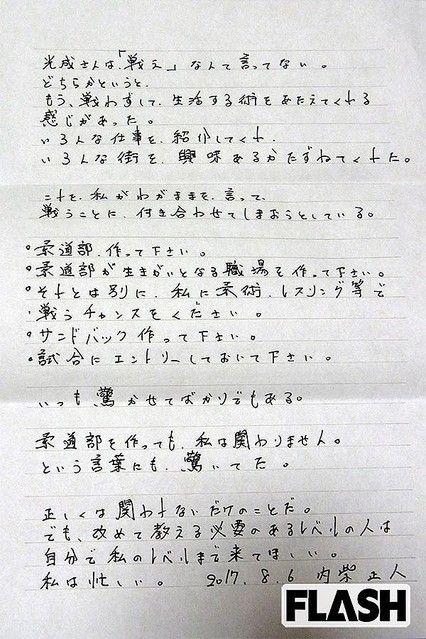 光成さんは「戦え」なんて言ってない。
どちらかというと、
もう、戦わずして、生活する術をあたえてくれる
感じがあった。
いろんな仕事を、紹介してくれ、
いろんな街を、興味あるかたずねてくれた。
それを、私がわがままを、言って、
戦うことに、付き合わせてしまおうとしている。
・柔道部、作って下さい。
・柔道部が生きがいとなる職場を作って下さい。
・それとは別に、私に柔術、レスリング等で
戦うチャンスをください。
・サンドバック作って下さい。
・試合にエントリーしておいて下さい。
いつも、驚かせてばかりでもある。
柔道部を作っても、私は関わりません。
という言葉にも、驚いてた。
正しくは関われないだけのことだ。
でも、改めて教える必要のあるレベルの人は
自分で私のレベルまで来てほしい。
私は忙しい。 2017.8.6 内柴正人
FLASH